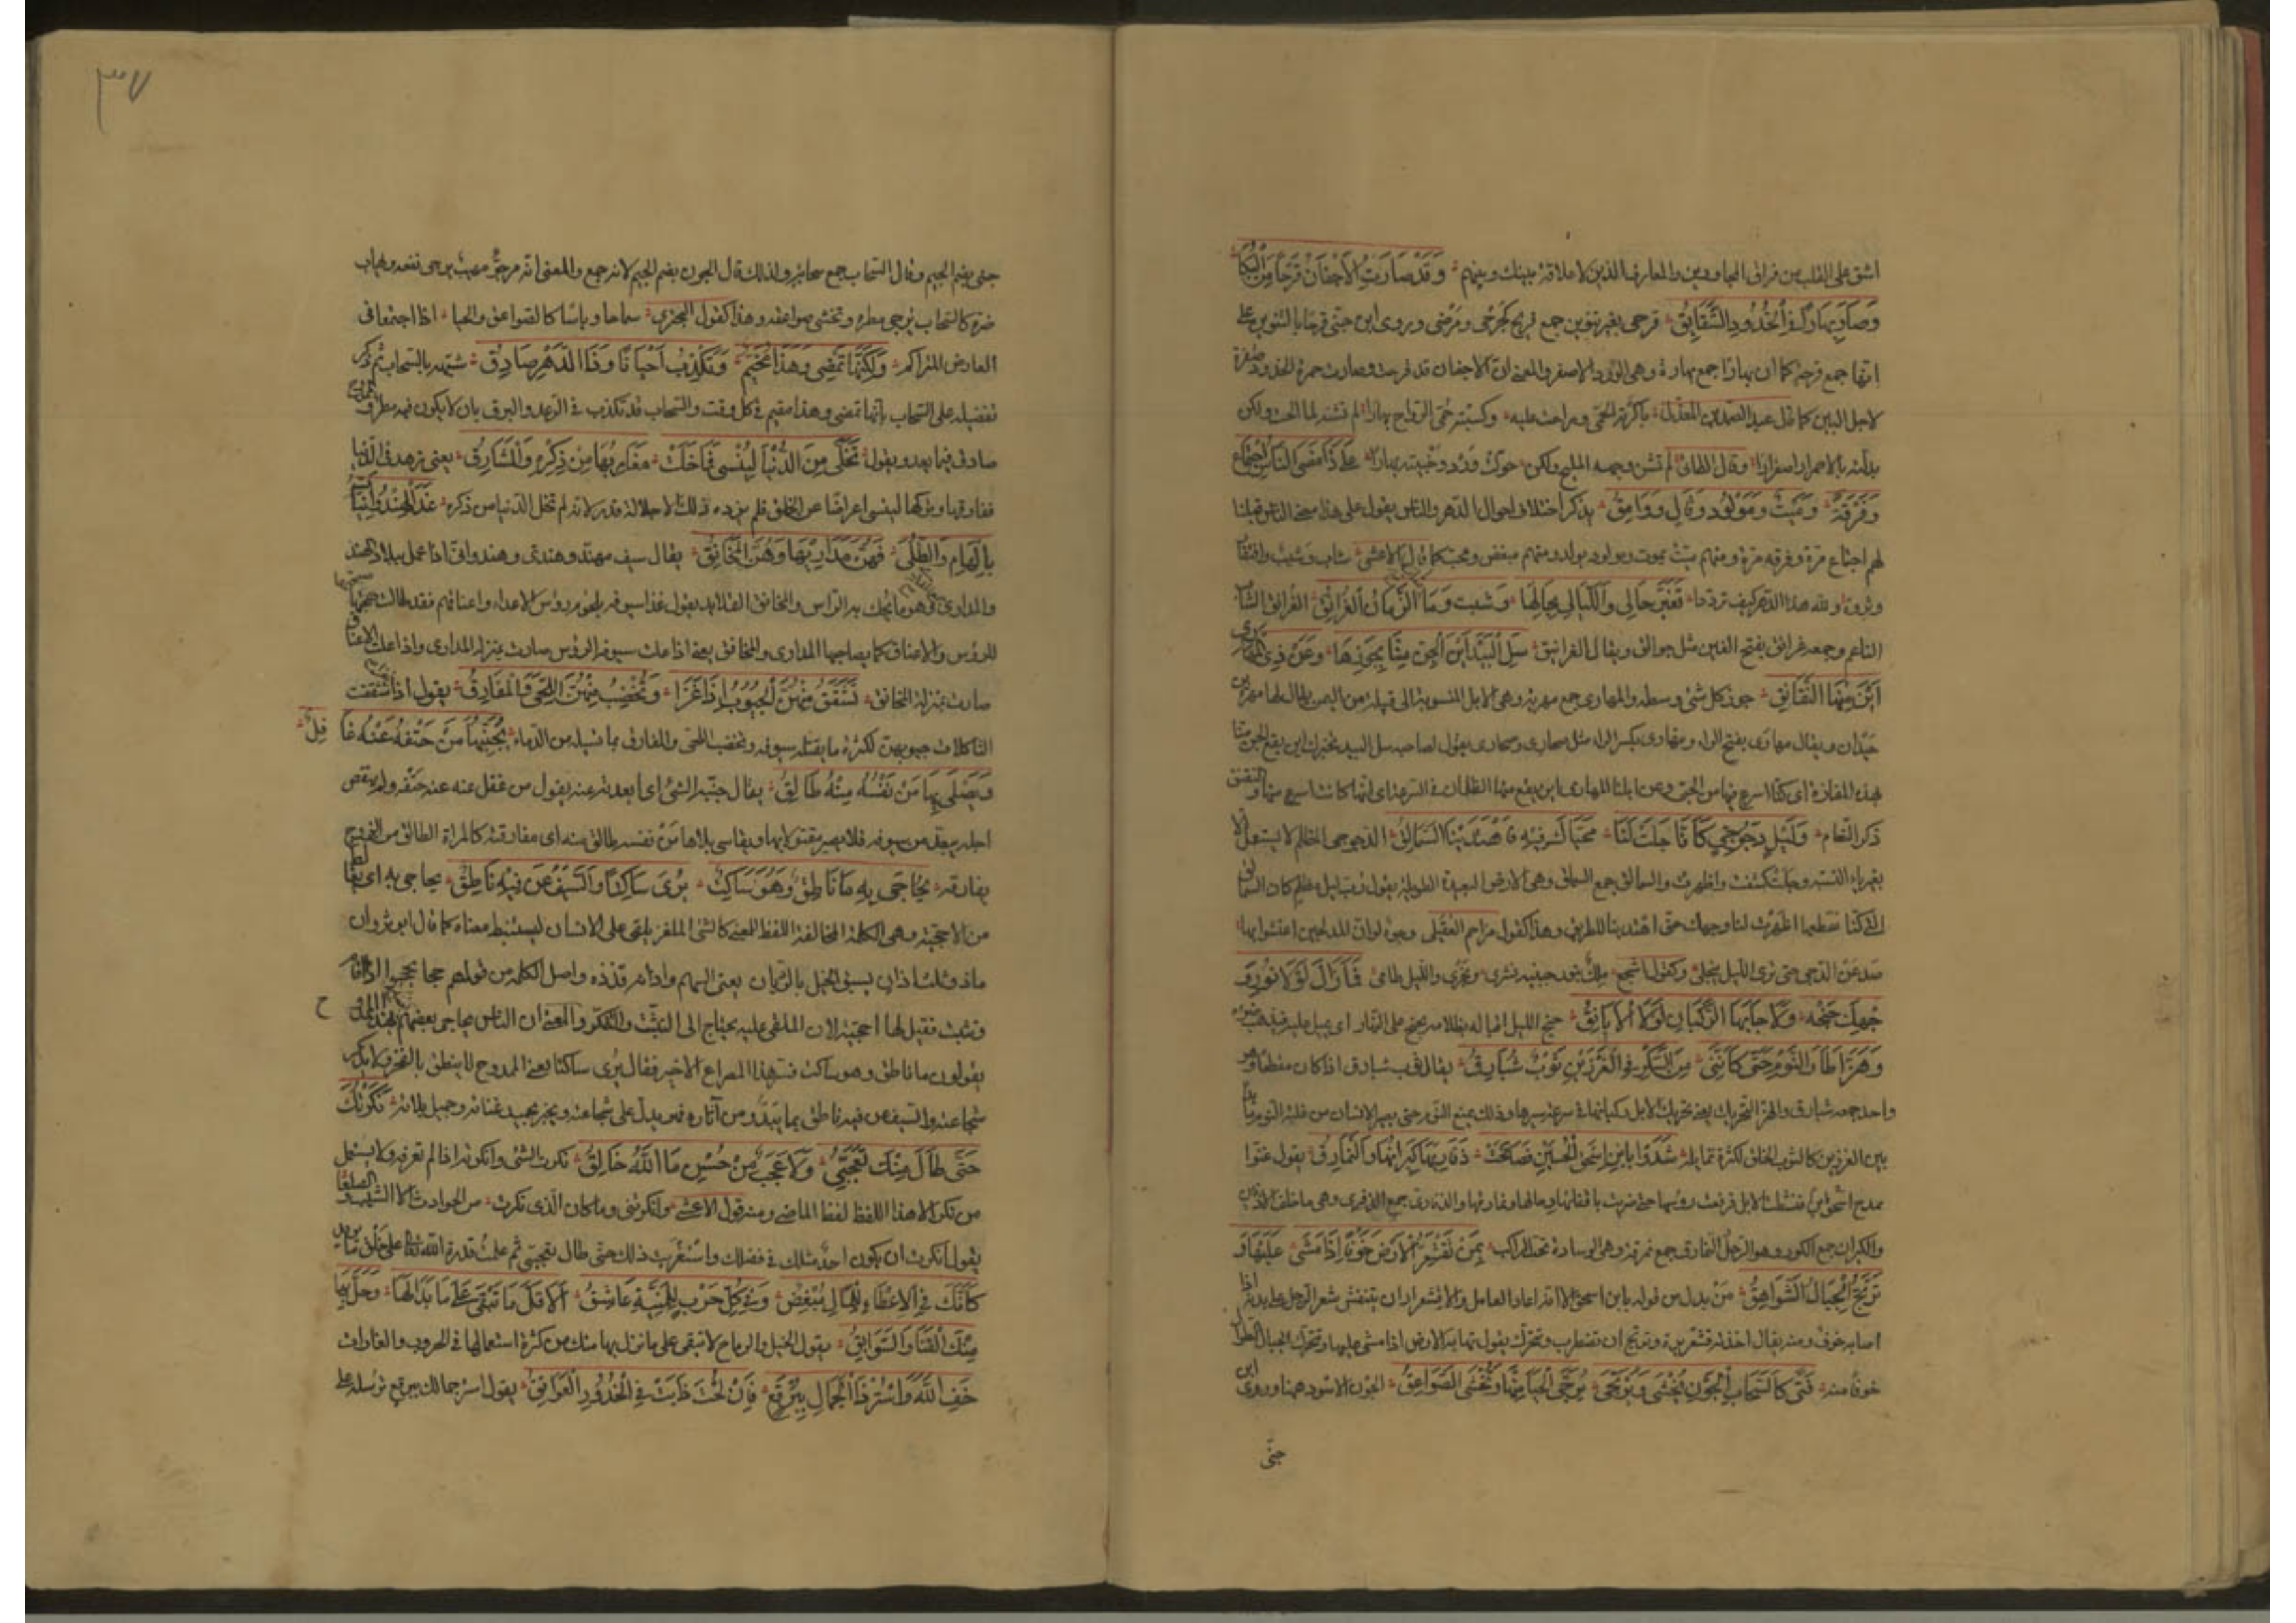 اشق على القلب من فراق المجاورين والمعارف الذين لا علاقة بينك وبينهم وَقَدْ صَارَتِ الْأَجْفَانُ قَرْحًا مِنَ الْبُكَا
وَصَارَ بَهَارًا فِي الْخُدُودِ الشَّقَايِقُ قرحى بغير تنوين جمع قريح كجرحى ومرضى وروى ابن جنى قرحا بالتنوين على
انها جمع قرحة كما ان بهارا جمع بهارة وهى الورد الاصفر والمعنى ان الاجفان قد قرحت وصارت حمرة الخدود صفرة
لاجل البين كما قال عبد الصمد بن المعذل باكرته الحمى وراحت عليه وكسته حمى الرواح بهارا لم تشنه لما الحت ولكن
بدلته بالاحمرار اصفرارا وقال الطائى لم تشن وجهه المليح ولكن حولت ورد وجنتيه بهارا عَلَى ذَا مَضَى النَّاسُ اجْتِمَاعٌ
وَفُرْقَةٌ وَمَيْتٌ وَمَوْلُودٌ وَقَالٍ وَوَامِقُ يذكر اختلاف احوال الدهر والناس يقول على هذا مضى الناس قبلنا
لهم اجتماع مرة وفرقة مرة ومنهم ميت يموت ومولود يولد ومنهم مبغض ومحب كما قال الاعشى شباب وشيب وافتقار
وثروة ولله هذا الدهر كيف ترددا تَغَيَّرَ حَالِي وَاللَّيَالِي بِحَالِهَا وَشِبْتُ وَمَا شَابَ الزَّمَانُ الْغُرَانِقُ الغرانق الشاب
الناعم وجمعه غرانق بفتح الغين مثل جوالق ويقال الغرانيق سَلِ الْبِيدَ أَيْنَ الْجِنُّ مِنَّا بِجَوْزِهَا وَعَنْ ذِي الْمَهَارِي
أَيْنَ مِنْهَا النَّقَانِقُ جوز كل شئ وسطه والمهارى جمع مهرية وهى الابل المنسوبة الى قبيلة من اليمن يقال لها مهرة بن
حيدان ويقال مهارى بفتح الراء ومهارى بكسر الراء مثل صحارى وصحارى يقول لصاحبه سل البيد تخبرك اين يقع الجن منا
بهذه المفازة اى كنا اسرع فيها من الجن وعن ابلنا المهارى اين يقع منها الظلمان فى السرعة اى انها كانت اسرع منها والنقنق
ذكر النعام وَلَيْلٍ دَجُوجِيٍّ كَأَنَّا جَلَتْ لَنَا مُحَيَّاكَ فِيهِ فَاهْتَدَيْنَا السَّمَالِقُ الدجوجى المظلم لا يستعمل الا
بغير ياء النسبة وجلت كشفت واظهرت والسمالق جمع السملق وهى الارض البعيدة الطويلة يقول رب ليل مظلم كان السمالق
التى كنا نقطعها اظهرت لنا وجهك حتى اهتدينا للطريق وهذا كقول مزاحم العقيلى وجوه لو ان المدلجين اعتشوا بها
صدعن الدجى حتى ترى الليل ينجلى وكقول اشجع ملك بنور جبينه نسرى وبحر الليل طامى فَمَا زَالَ لَوْلَا نُورُ وَ
جْهِكَ جُنْحُهُ وَلَا جَابَهَا الرُّكْبَانُ لَوْلَا الْأَيَانِقُ جنح الليل اقباله بظلامه يجنح على النهار اى يميل عليه فيذهب بضوءه
وَهَزٌّ أَطَارَ النَّوْمَ حَتَّى كَأَنَّنِي مِنَ السُّكْرِ فِي الْغَرْزَيْنِ ثَوْبٌ شُبَارِقُ يقال ثوب شبارق اذا كان مقطعا وهو
واحد جمعه شبارق والهز التحريك يعنى تحريك الابل ركبانها فى سرعة سيرها وذلك يمنع النوم حتى يصير الانسان من غلبة النوم متمايلا
بين الغرزين كالثوب الخلق لكثرة تمايله شَدَوْا بِابْنِ إِسْحَقَ الْحُسَيْنِ فَصَافَحَتْ ذَفَارِيهَا كِيرَانُهَا وَالنَّمَارِقُ يقول غنوا
بمدح ابن اسحق فنشطت الابل فرفعت روسها حتى ضربت باقفائها رحالها ومفارقها والذفارى جمع الذفرى وهى ما خلف الاذن
والكيران جمع الكور وهو الرحل النمارق جمع نمرقة وهى الوسادة تحت الراكب بِمَنْ تَقْشَعِرُّ الْأَرْضُ خَوْفًا إِذَا مَشَى عَلَيْهَا وَ
تَرْتَجُّ الْجِبَالُ الشَّوَاهِقُ من بدل من قوله بابن اسحق الا انه اعاد العامل والاقشعرار ان ينتفش شعر الرجل على بدنه اذا
اصابه خوف ومنه يقال اخذته قشعريرة وترتج ان تضطرب وتتحرك يقول تهابه الارض اذا مشى عليها وتتحرك الجبال الطوال
خوفا منه فَتًى كَالسَّحَابِ الْجُونِ يُخْشَى وَيُرْتَجَى يُرَجَّى الْحَيَا مِنْهَا وَتُخْشَى الصَّوَاعِقُ الجون الاسود ههنا وروى ابن
جنّى
٣٧
جنى بضم الجيم وقال السحاب جمع سحابة ولذلك قال الجون بضم الجيم لانه جمع والمعنى انه مرجو مهيب يرجى نفعه ويهاب
ضره كالسحاب يرجى مطره وتخشى صواعقه وهذا كقول البحترى سماحا وباسا كالصواعق والحيا اذا اجتمعا فى
العارض المتراكم وَلَكِنَّهَا تَمْضِي وَهَذَا مُخَيِّمٌ وَتَكْذِبُ أَحْيَانًا وَذَا الدَّهْرَ صَادِقُ شبهه بالسحاب ثم ذكر
تفضيله على السحاب بانها تمضى وهذا مقيم فى كل وقت والسحاب قد تكذب فى الرعد والبرق بان لا يكون فيه مطر والممدوح
صادق فيما يعد ويقول تَخَلَّى مِنَ الدُّنْيَا لِيُنْسَى فَمَا خَلَتْ مَغَارِبُهَا مِنْ ذِكْرِهِ وَالْمَشَارِقُ يعنى زهد فى الدنيا
ففارقها وتركها لينسى اعراضا عن الخلق فلم يزده ذلك الا جلالة قدر لانه لم تخل الدنيا من ذكره غَذَا الْهِنْدُوَانِيَّاتِ
بِالْهَامِ وَالطُّلَى فَهُنَّ مَدَارِيهَا وَهُنَّ الْمَخَانِقُ يقال سيف مهند وهندى وهندوانى اذا عمل ببلاد الهند
والمدارى هو ما يحك به الراس والمخانق القلائد يقول غذا سيوفه بلحوم رؤس الاعداء واعناقهم فقد طالت صحبتها
للرؤس والاعناق كما يصاحبها المدارى والمخانق يعنى اذا علت سيوفه الرؤس صارت بمنزلة المدارى واذا علت الاعناق
صارت بمنزلة المخانق تَشَقَّقُ مِنْهُنَّ الْجُيُوبُ إِذَا غَزَا وَتُخْضَبُ مِنْهُنَّ اللِّحَى وَالْمَفَارِقُ يقول اذا غزا تشققت
الثاكلات جيوبهن لكثرة ما يقتله سيوفه وتخضب اللحى والمفارق بما تسيله من الدماء يُجَنَّبُهَا مَنْ حَتْفُهُ عَنْهُ غَا فِلٌ
وَيَصْلَى بِهَا مَنْ نَفْسُهُ مِنْهُ طَالِقُ يقال جنبته الشئ اى ابعدته عنه يقول من غفل عنه حتفه ولم ينقص
اجله يبعد من سيوفه فلا يصير مقتولا بها ويقاسى بلاها من نفسه طالق منه اى مفارقته كالمراة الطالق من الزوج
يفارقه يُحَاجَى بِهِ مَا نَاطِقٌ وَهُوَ سَاكِتٌ يُرَى سَاكِتًا وَالسَّيْفُ عَنْ فِيهِ نَاطِقُ يحاجى به اى يغالط
من الاحجية وهى الكلمة المخالفة اللفظ للمعنى كالشئ الملغز يلقى على الانسان ليستنبط معناه كما قال ابو ثروان
ماذو ثلث اذان يسبق الخيل بالرديان يعنى السهم واذانه قذذه واصل الكلمة من قولهم حجا يحجو اذا اقام
وتثبت فقيل لها احجية لان الملقى عليه يحتاج الى التثبت والتفكر والمعنى ان الناس يحاجى بعضهم بعضا بهذا الممدوح
يقولون ما ناطق وهو ساكت فسر هذا المصراع الاخير فقال يرى ساكتا يعنى الممدوح لا ينطق بالفخر ولا يذكر
شجاعته والسيف عن فيه ناطق بما يبدو من آثاره فهو يدل على شجاعته ويخبر بجيد غنائه وجميل بلائه نَكَرْتُكَ
حَتَّى طَالَ مِنْكَ تَعَجُّبِي وَلَا عَجَبٌ مِنْ حُسْنِ مَا اللَّهُ خَالِقُ نكرت الشئ وانكرته اذا لم تعرفه ولا يستعمل
من نكر الا هذا اللفظ لفظ الماضى ومنه قول الاعشى وانكرتنى وما كان الذى نكرت من الحوادث الا الشيب والصلعا
يقول انكرت ان يكون احد مثلك فى فضلك واستغربت ذلك حتى طال تعجبى ثم علمت قدرة الله تعالى على خلق ما يريد
كَأَنَّكَ فِي الْإِعْطَاءِ لِلْمَالِ مُبْغِضٌ وَفِي كُلِّ حَرْبٍ لِلْمَنِيَّةِ عَاشِقُ أَلَا قَلَّ مَا تَبْقَى عَلَى مَا بَدَا لَهَا وَحَلَّ بِهَا
مِنْكَ الْقَنَا وَالسَّوَابِقُ يقول الخيل والرماح لا تبقى على ما نزل بها منك من كثرة استعمالها فى الحروب والغارات
خَفِ اللَّهَ وَاسْتُرْ ذَا الْجَمَالِ بِبُرْقُعٍ فَإِنْ لُحْتَ ذَابَتْ فِي الْخُدُورِ الْعَوَاتِقُ يقول استر جمالك ببرقع ترسله على